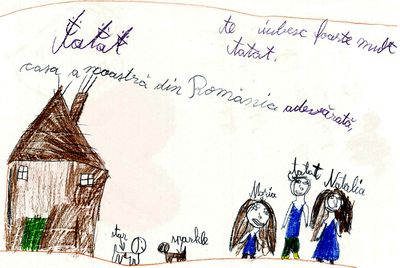 Tatăl
te iubesc foarte mult
tatăl.
casa a noastră din România adevărată,
Maria
tatăl
Natalia
star
sparkle